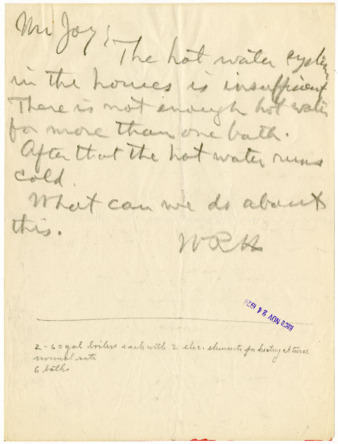 Mr Joy:
The hot water system
in the houses is insufficient
There is not enough hot water
for more than one bath.
After that the hot water runs
cold.
What can we do about
this.
WRH
NOV 24
2 - 60 gal boilers each with 2 elec. elements for heating at three
normal rate
6 baths